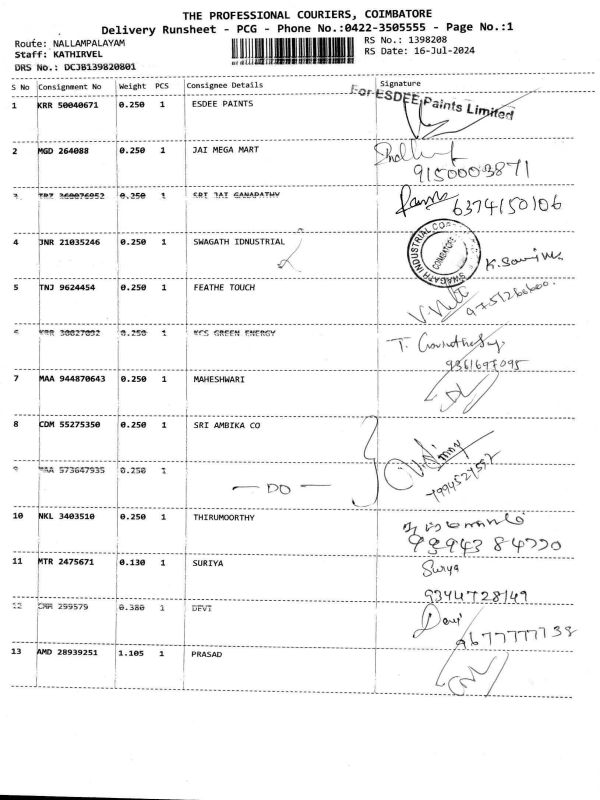 THE PROFESSIONAL COURIERS, COIMBATORE
Delivery Runsheet - PCG - Phone No.:0422-3505555 - Page No.:1
Route: NALLAMPALAYAM RS No.: 1398208
Staff: KATHIRVEL RS Date: 16-Jul-2024
DRS No.: DCJB139820801
S No Consignment No Weight PCS Consignee Details Signature
For ESDEE Paints Limited
1 KRR 50040671 0.250 1 ESDEE PAINTS
2 MGD 264088 0.250 1 JAI MEGA MART
9150003871
3 TRZ 360076952 0.250 1 SRI JAI GANAPATHY
6374150106
4 JNR 21035246 0.250 1 SWAGATH IDNUSTRIAL
SWAGATH INDUSTRIAL COATINGS COIMBATORE
5 TNJ 9624454 0.250 1 FEATHE TOUCH
9751260600
6 KRR 30027092 0.250 1 KCS GREEN ENERGY
9361697095
7 MAA 944870643 0.250 1 MAHESHWARI
8 CDM 55275350 0.250 1 SRI AMBIKA CO
9 MAA 573647935 0.250 1
— DO —
10 NKL 3403510 0.250 1 THIRUMOORTHY
9894384720
11 MTR 2475671 0.130 1 SURIYA Surya
9344728149
12 CMR 299579 0.380 1 DEVI Devi
9677777738
13 AMD 28939251 1.105 1 PRASAD